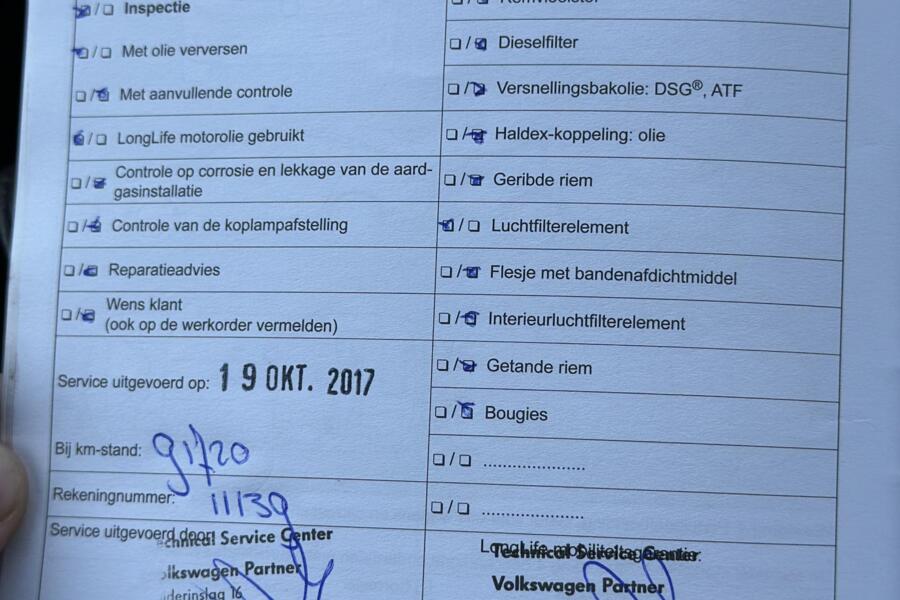 Inspectie
Met olie verversen
Met aanvullende controle
LongLife motorolie gebruikt
Controle op corrosie en lekkage van de aard-
gasinstallatie
Controle van de koplampafstelling
Reparatieadvies
Wens klant
(ook op de werkorder vermelden)
Service uitgevoerd op: 19 OKT. 2017
Bij km-stand: 91720
Rekeningnummer: 11139
Service uitgevoerd door:
Technical Service Center
Volkswagen Partner
16
Dieselfilter
Versnellingsbakolie: DSG®, ATF
Haldex-koppeling: olie
Geribde riem
Luchtfilterelement
Flesje met bandenafdichtmiddel
Interieurluchtfilterelement
Getande riem
Bougies
......................
......................
LongLife mobiliteitsgarantie:
Technical Service Center
Volkswagen Partner